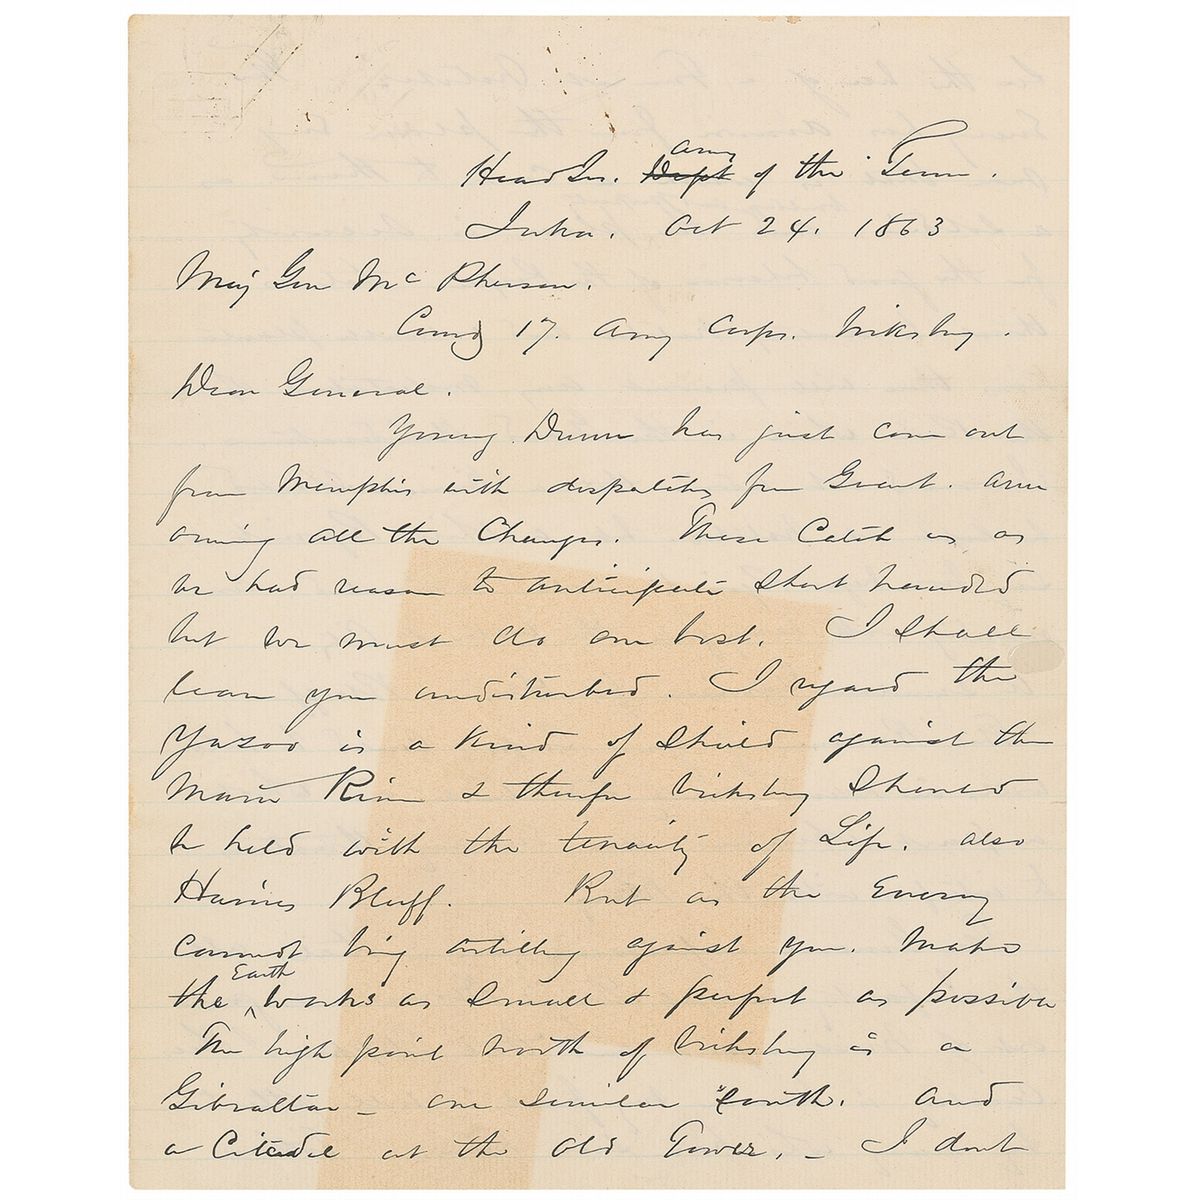 Head Qrs. Dept Army of the Tenn.
Iuka. Oct 24. 1863
Maj Gen McPherson.
Comdg 17. Army Corps. Vicksburg.
Dear General.
Young Dunn has just come out
from Memphis with despatches from Grant. ann
ouncing all the Changes. These Catch us as
we had reason to anticipate short handed
but we must do our best. I shall
leave you undisturbed. I regard the
Yazoo is a Kind of Shield against the
Main River & therefore Vicksburg Should
be held with the tenacity of Life. also
Haines Bluff. But as the Enemy
cannot bring artillery against you. Make
the Earth works as Small & perfect as possible
The high point North of Vicksburg is a
Gibraltar - one similar South. and
a Citadel at the old Tower. - I dont